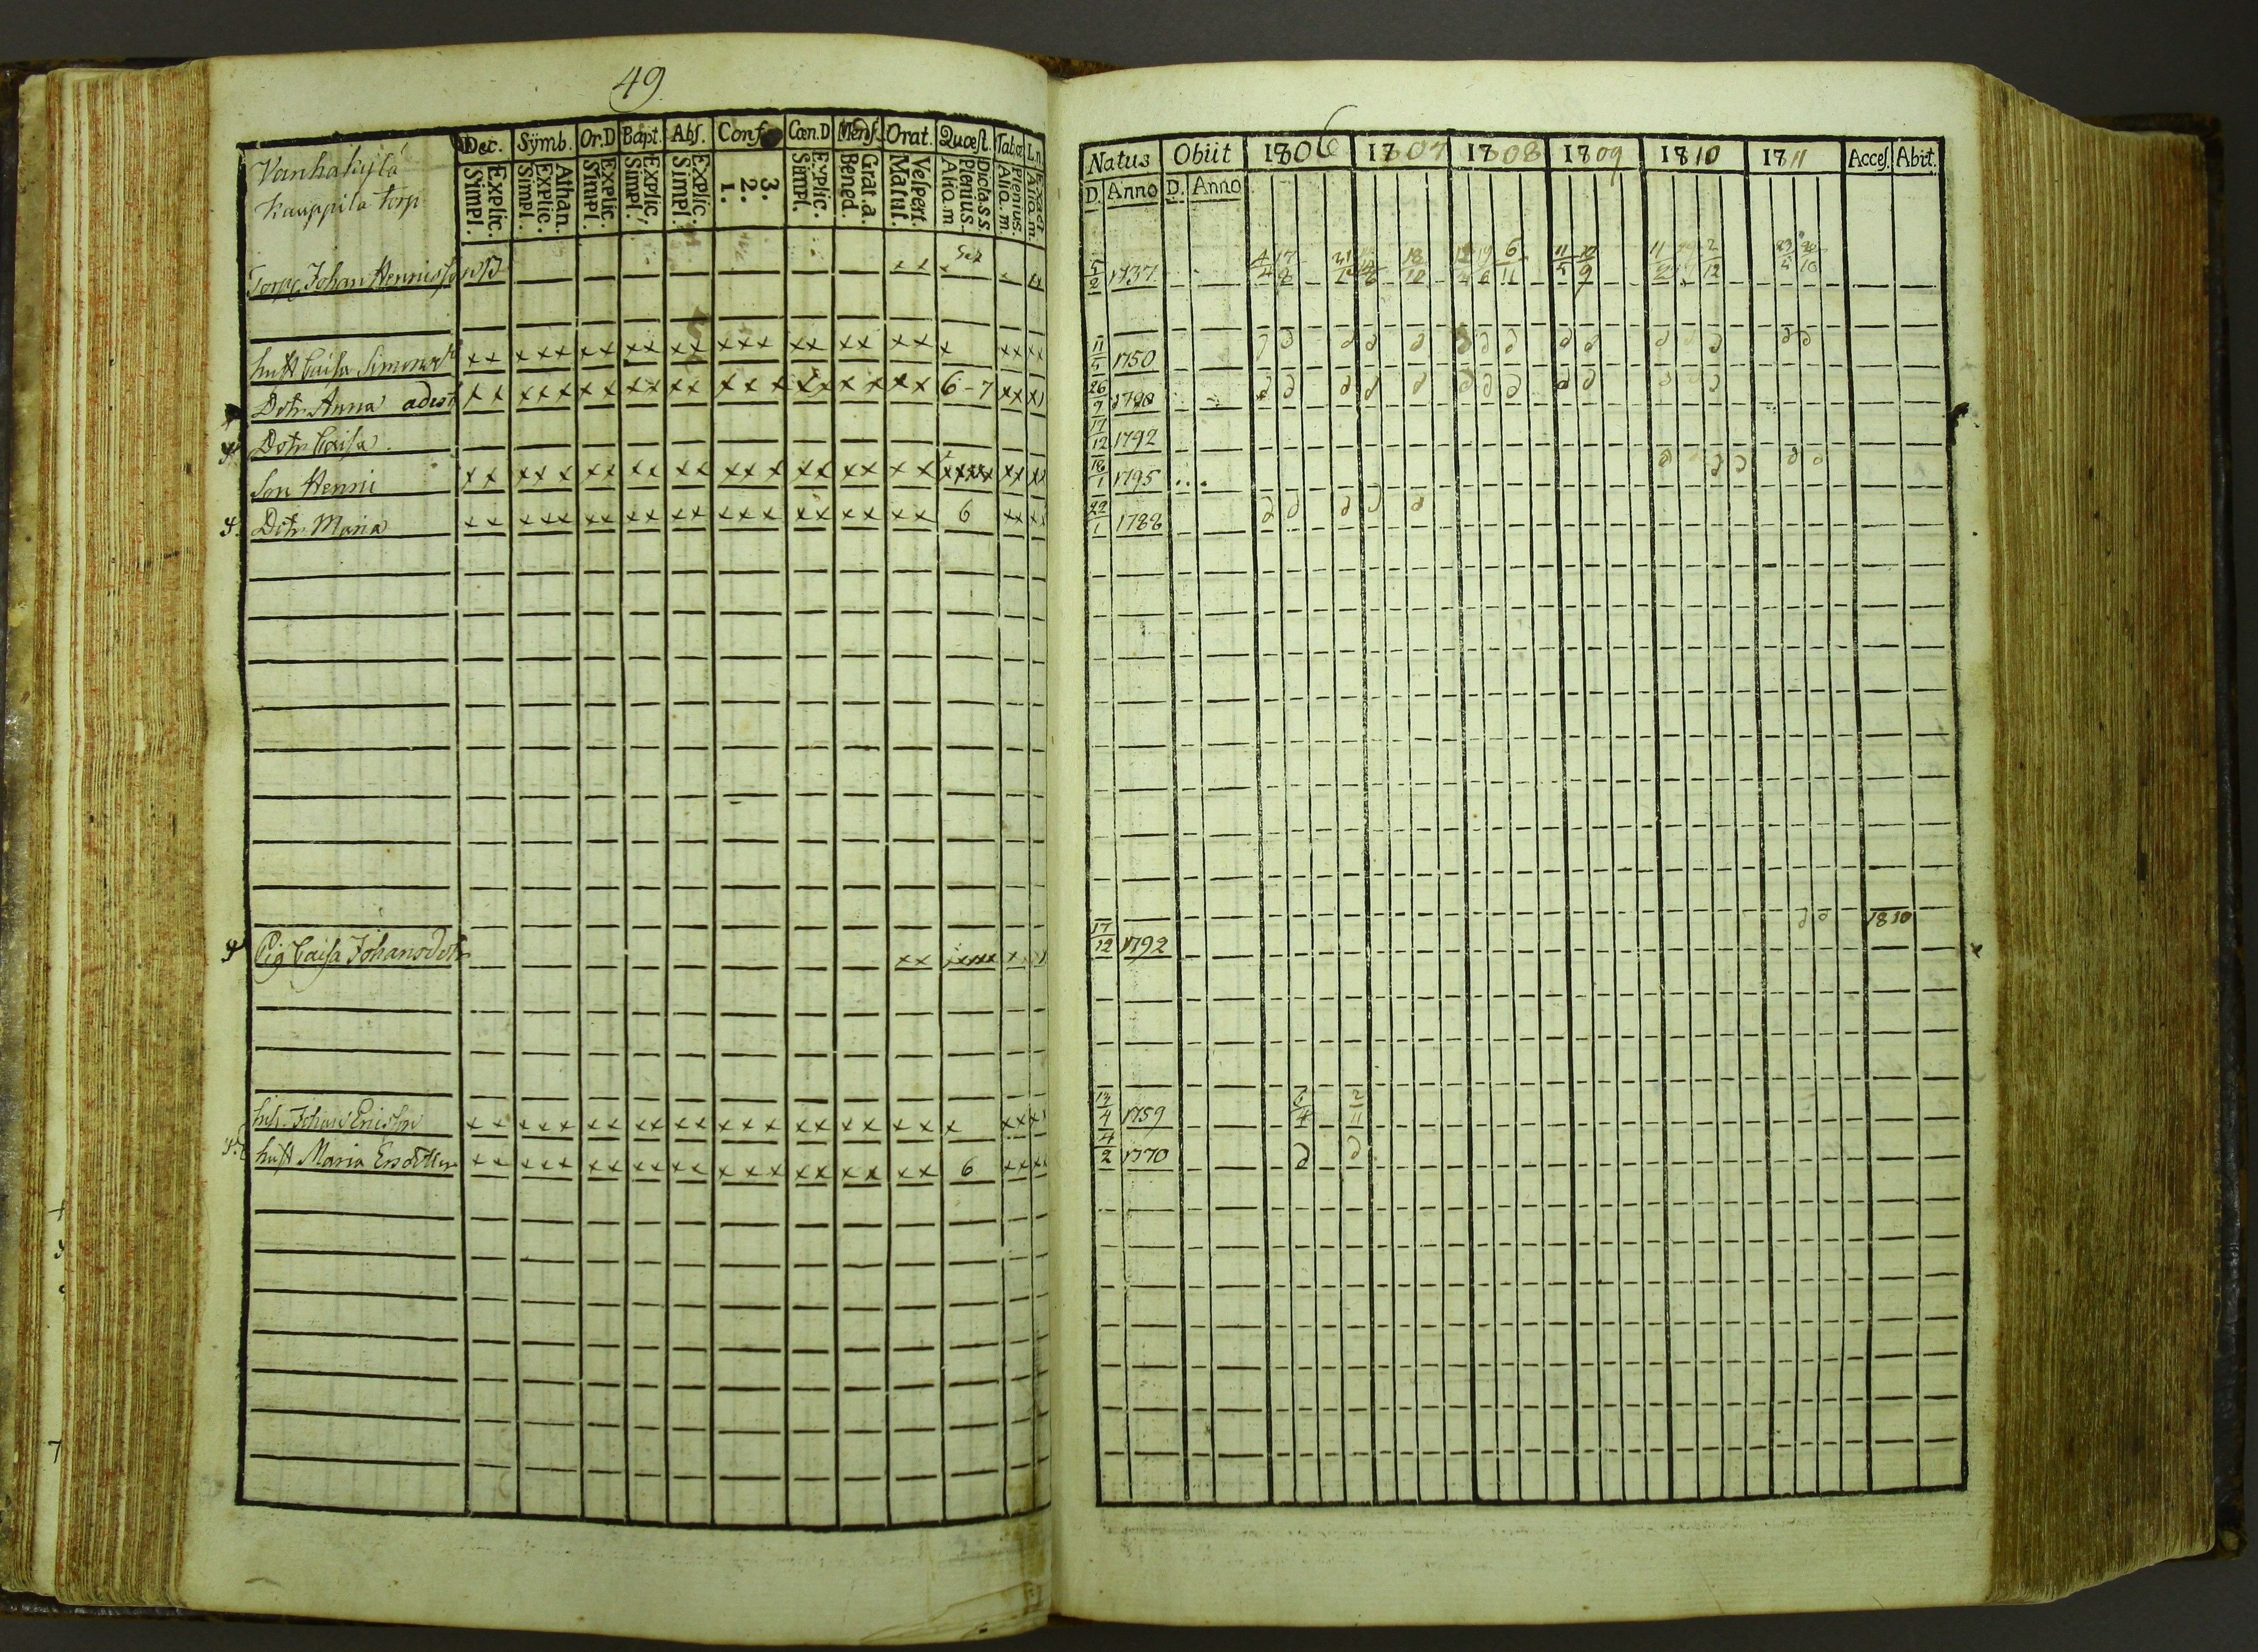 49
Dec. Symb. Or.D Bapt. Abs. Conf. Cœn.D Mens. Orat. Quœst. Tab.œ L.n.
Explic. Simpl. Athan. Explic. Simpl. Explic. Simpl. Explic. Simpl. Explic. Simpl. 3. 2. 1. Explic. Simpl. Grat.a. Bened. Vespert. Matut. Dicta.S.S. Plenius. Aliq.m Plenius. Aliq.m. Exact Aliq.m.
Vanhakylä
Kauppila torp
Torp. Johan Hennisson
hust Caisa Simonsdr
Dotr. Anna adest x x x x x x x x x x x x x x x x x x x x x 6-7 x x
Dotr Caisa
Son Henri
Dotr. Maria x x x x x x x x x x x x x x x x x x x x 6 x x
Pig Caisa Johansdotr
Inh. Johan Ericsson
hust Maria Ersdotter x x x x x x x x x x x x x x x x x x x x 6 x x
Natus Obiit 1806 1807 1808 1809 1810 1811 Acces. Abit.
D. Anno D. Anno
5/2 1737 4/4 17/8 18/12 6/11 11/5 10/9 2/12
11/5 1750
26/7 1780
17/12 1792
18/1 1795
22/1 1788
17/12 1792 1810
13/4 1759 6/4 2/11
4/2 1770